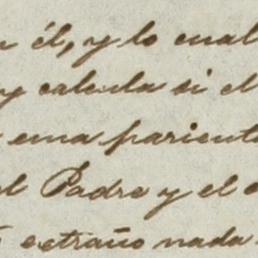 él, y lo cual
y calcula si el
una parienta
el Padre y el
extraño nada